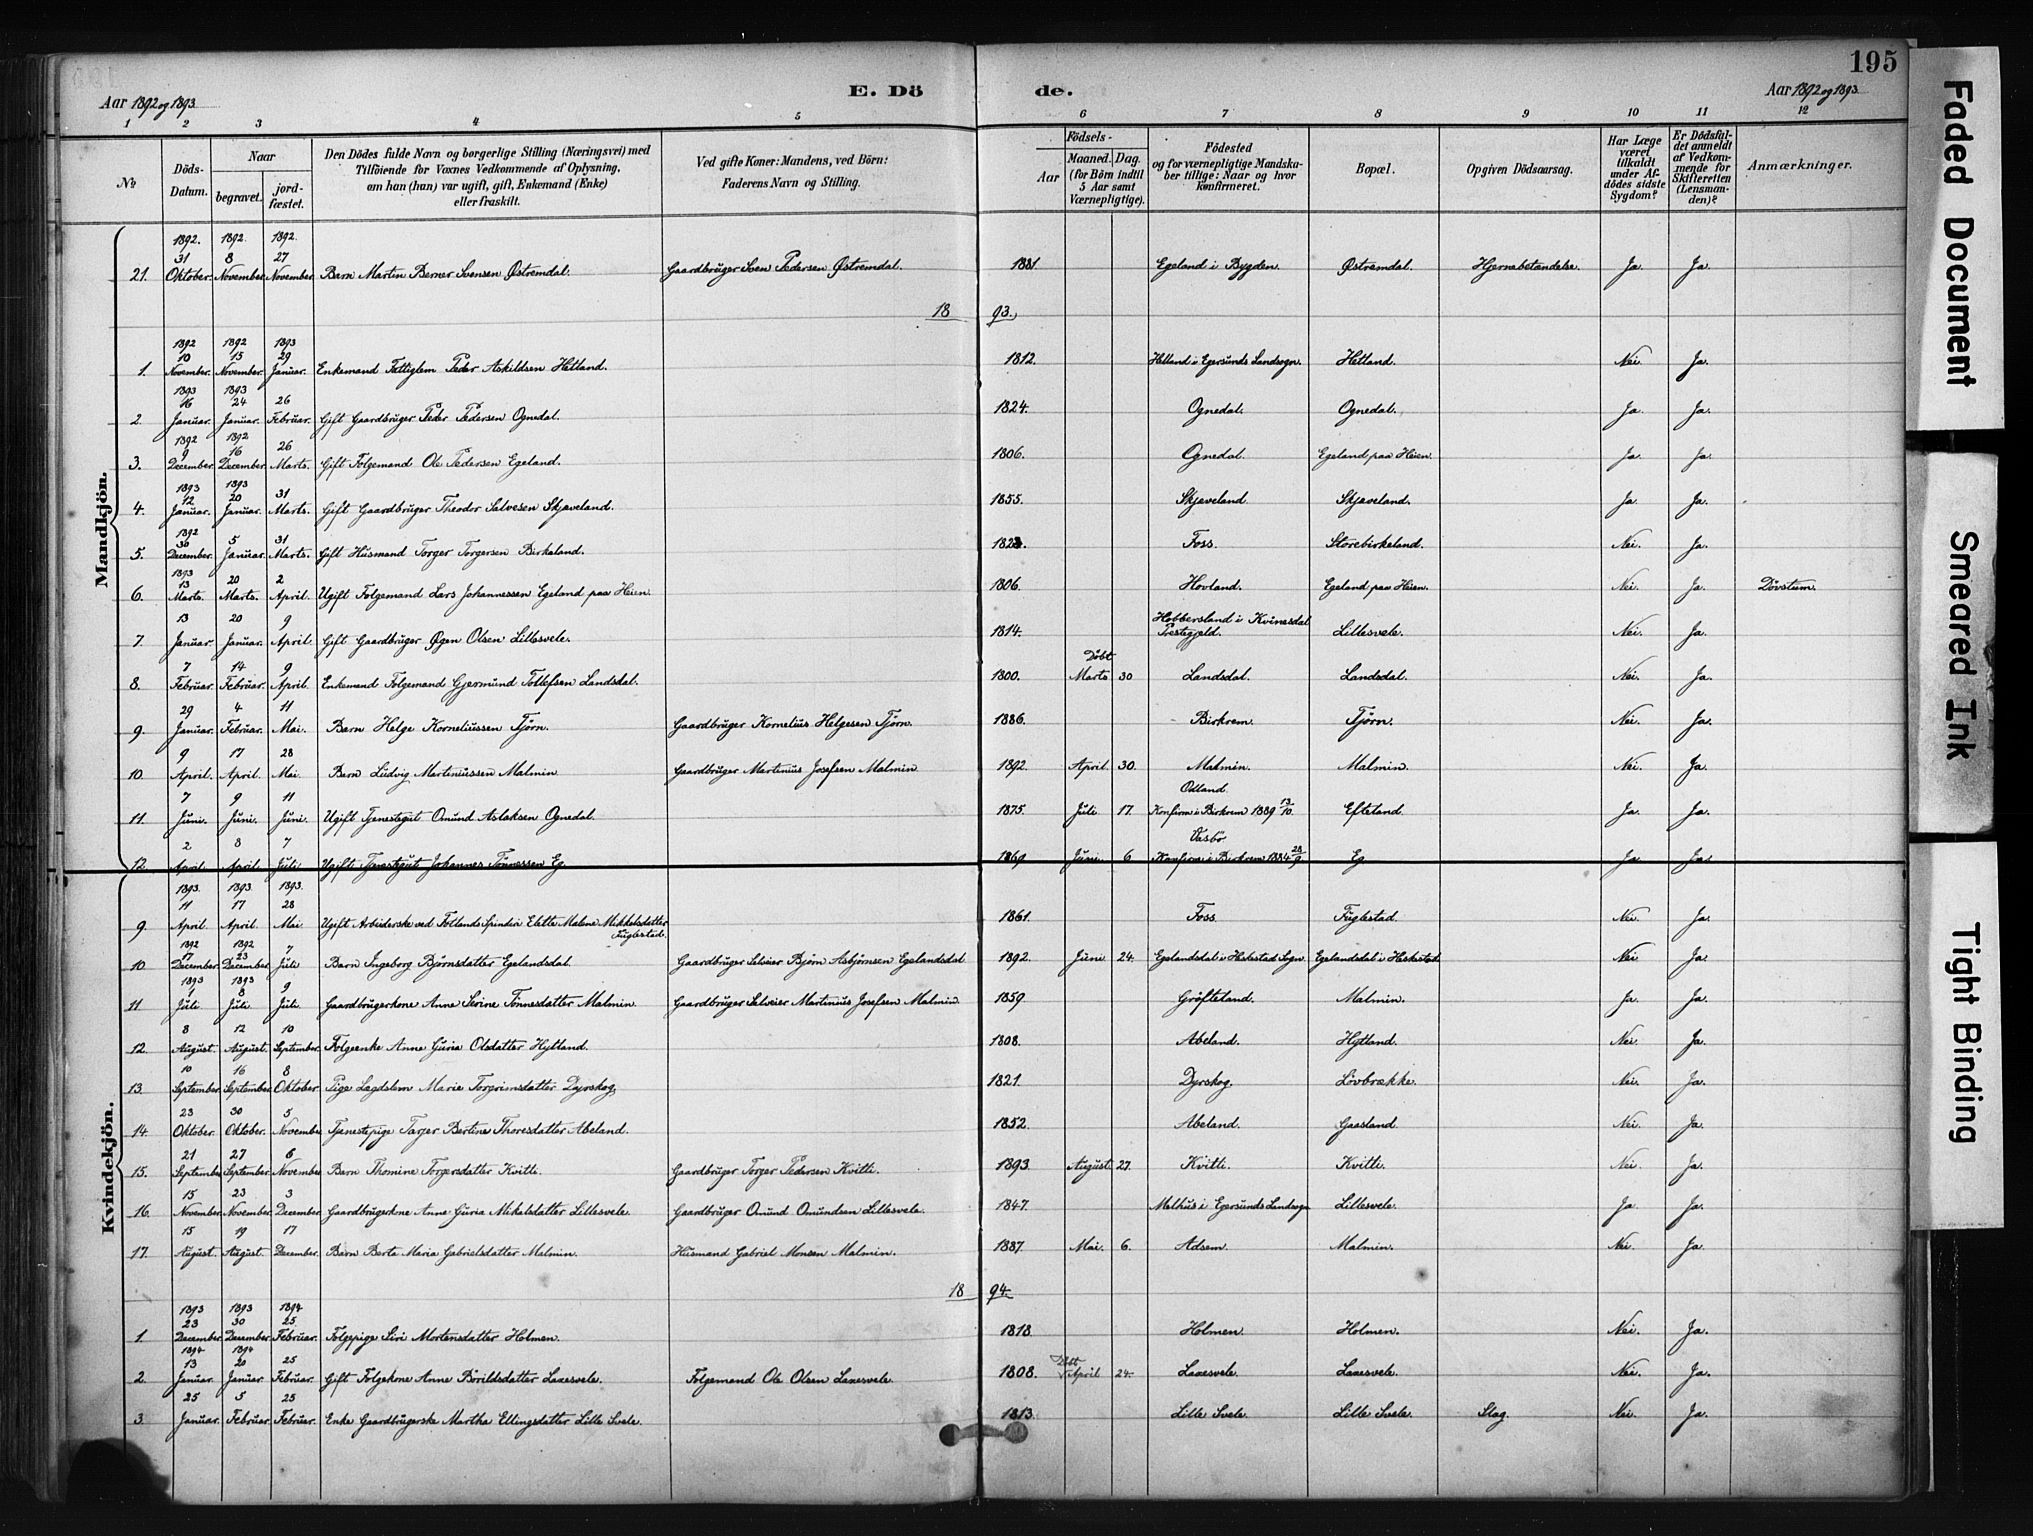 195
Aar 1892 og 1893.
E. Dö de.
Aar 1892 og 1893.
1 2 3 4 5 6 7 8 9 10 11 12
No
Döds-Datum.
Naar
begravet.
jord-fæstet.
Den Dödes fulde Navn og borgerlige Stilling (Næringsvei) med
Tilföiende for Voxnes Vedkommende af Oplysning,
om han (hun) var ugift, gift, Enkemand (Enke)
eller fraskilt.
Ved gifte Koner: Mandens, ved Börn:
Faderens Navn og Stilling.
Födsels-
Aar
Maaned. Dag.
(for Börn indtil
5 Aar samt
Værnepligtige).
Födested
og for værnepligtige Mandska-
ber tillige: Naar og hvor
konfirmeret.
Bopæl.
Opgiven Dödsaarsag.
Har Læge
været
tilkaldt
under Af-
dödes sidste
Sygdom?
Er Dödsfal-
det anmeldt
af Vedkom-
mende for
Skifteretten
(Lensman-
den)?
Anmærkninger.
Mandkjön.
1892. 1892. 1892.
31 8 27
21. Oktober. November. November. Barn Martin Berner Svensen Østremdal. Gaardbrüger Sven Pedersen Østremdal. 1881. Egeland i Bygden. Østremdal. Hjernebetændelse. Ja. Ja.
18 93.
1892 1892 1893
10 15 29
1. November. November. Januar. Enkemand Fattiglem Peder Askildsen Hetland. 1812. Hetland i Egersunds Landsogn. Hetland. Nei. Ja.
1893 1893
16 24 26
2. Januar. Januar. Februar. Gift Gaardbrüger Peder Pedersen Ognedal. 1824. Ognedal. Ognedal. Ja. Ja.
1892 1892
9 16 26
3. December. December. Marts. Gift Folgemand Ole Pedersen Egeland. 1806. Ognedal. Egeland paa Heien. Ja. Ja.
1893 1893
12 20 31
4. Januar. Januar. Marts. Gift Gaardbrüger Theodor Salvesen Skjæveland. 1855. Skjæveland. Skjæveland. Ja. Ja.
1892
30 5 31
5. December. Januar. Marts. Gift Husmand Torger Torgersen Birkeland. Foss. Storebirkeland. Nei. Ja.
1893
13 20 2
6. Marts. Marts. April. Ugift Folgemand Lars Johannessen Egeland paa Heien. 1806. Hovland. Egeland paa Heien. Nei. Ja. Døvstum.
13 20 9
7. Januar. Januar. April. Gift Gaardbrüger Øgen Olsen Lillesvele. 1814. Hobbersland i Kvinesdal Prestegjeld. Lillesvele. Nei. Ja.
7 14 9
8. Februar. Februar. April. Enkemand Folgemand Gjermund Tollefsen Landsdal. 1800. Døbt Marts 30 Landsdal. Landsdal. Nei. Ja.
29 4 11
9. Januar. Februar. Mai. Barn Helge Korneliussen Tjørn. Gaardbrüger Kornelius Helgesen Tjørn. 1886. Birkrem. Tjørn. Nei. Ja.
9 17 28
10. April. April. Mai. Barn Ludvig Martinussen Malmin. Gaardbrüger Martinus Josefsen Malmin. 1892. April. 30. Malmin. Malmin. Nei. Ja.
7 9 11
11. Juni. Juni. Juni. Ugift Tjenestegut Omund Aslaksen Ognedal. 1875. Juli 17. Odland Konfirm. i Birkrem 1889 13/10. Efteland. Ja. Ja.
2 8 7
12. April. April. Juli Ugift Tjenestegut Johannes Tønnessen Eg. 1869. Juni 6 Vasbø Konfirm. i Birkrem 1884 28/9. Eg. Ja. Ja.
Kvindekjön.
1893. 1893. 1893.
11 17 28
9. April. April. Mai. Ugift Arbeiderske ved Fotlands Spinderi Elette Malene Mikkelsdatter Fuglestad. 1861. Foss. Fuglestad. Nei. Ja.
1892 1892
17 23 7
10. December. December. Juli Barn Ingeborg Bjørnsdatter Egelandsdal. Gaardbrüger Selveier Bjørn Asbjørnsen Egelandsdal 1892. Juni 24. Egelandsdal i Heskestad Sogn. Egelandsdal i Heskestad Nei Ja.
1893 1893
1 8 9
11 Juli Juli. Juli. Gaardbrügerkone Anne Serine Tønnesdatter Malmin. Gaardbrüger Selveier Martinius Josefsen Malmin. 1859. Grøfteland. Malmin. Ja. Ja.
8 12 10
12. August. August. September. Folgeenke Anne Guria Olsdatter Hytland. 1808. Abeland. Hytland. Nei. Ja.
10 16 8
13. September. September. Oktober. Pige Lægdslem Marie Torgrimsdatter Dyrskog. 1821. Dyrskog. Løvbrække. Nei. Ja.
23 30 5
14. Oktober. Oktober. November. Tjenestepige Targer Bertine Thoresdatter Abeland. 1852. Abeland. Gaasland. Nei. Ja.
21 27 6
15. September. September. November. Barn Thomine Torgersdatter Kvitti. Gaardbrüger Torger Pedersen Kvitti. 1893. August. 27. Kvitti. Kvitti. Nei. Ja.
15 23 3
16. November. November. December. Gaardbrügerkone Anne Guria Mikelsdatter Lillesvele. Gaardbrüger Omund Omundsen Lillesvele. 1847. Melhus i Egersunds Landsogn. Lillesvele. Ja. Ja.
15 19 17
17. August. August. December. Barn Berta Maria Gabrielsdatter Malmin. Husmand Gabriel Monsen Malmin. 1887. Mai. 6. Adsem. Malmin. Nei. Ja.
18 94.
1893 1893 1894
23 30 25
1. December. December. Februar. Folgepige Siri Mortensdatter Holmen. 1818. Holmen. Holmen. Nei. Ja.
1894 1894
13 20 25
2. Januar. Januar. Februar. Gift Folgekone Anne Børildsdatter Laxesvele. Folgemand Ole Olsen Laxesvele. 1808. Døbt April 24. Laxesvele. Laxesvele. Nei. Ja.
25 5 25
3. Januar. Februar. Februar. Enke Gaardbrügerske Martha Ellingsdatter Lille Svele. 1813. Lille Svele. Lille Svele. Slag. Nei. Ja.
Faded Document
Smeared Ink
Tight Binding